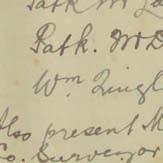 Patk McD
Wm
Also present M
Co. Surveyor